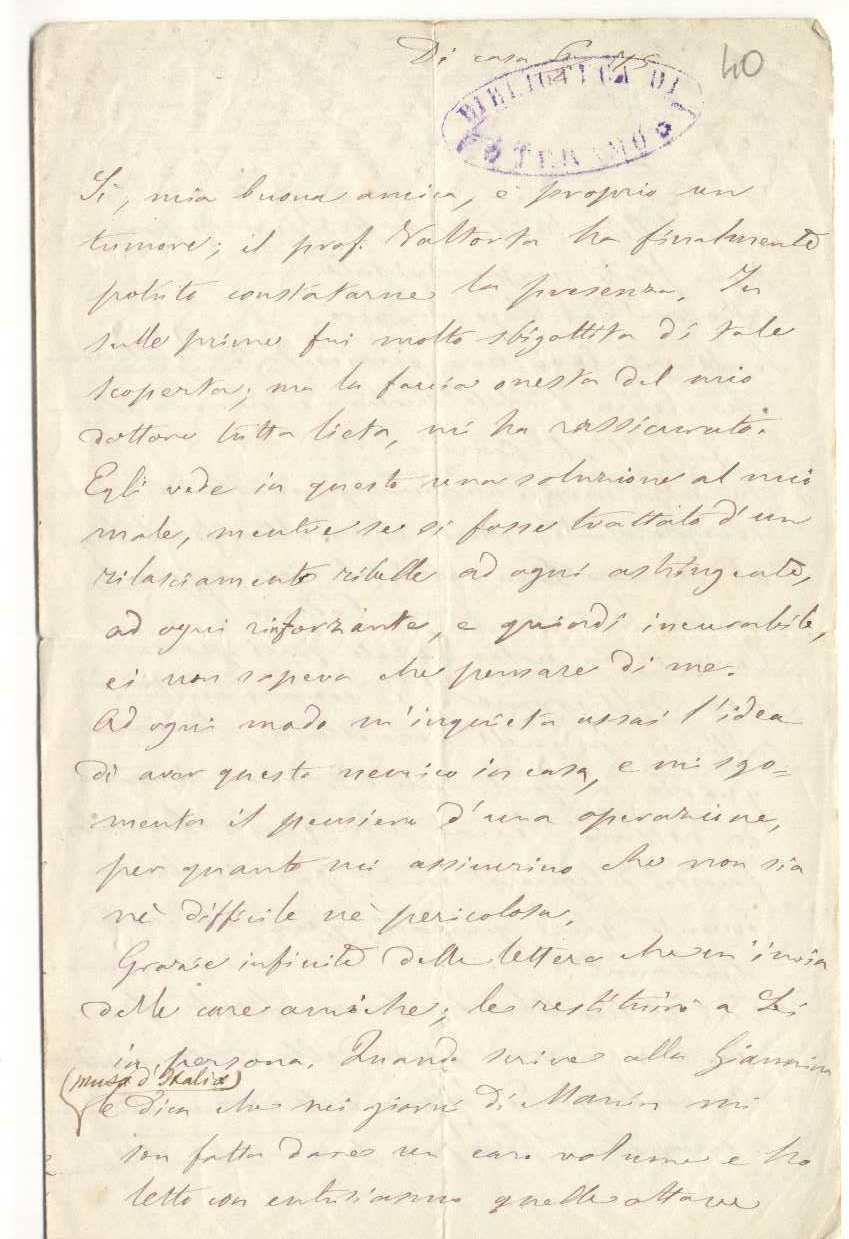 Di casa 6
40
BIBLIOTECA DI
TERAMO
Sì, mia buona amica, è proprio un
tumore; il prof. Valtorta ha finalmente
potuto constatarne la presenza. In
sulle prime fui molto sbigottita di tale
scoperta; ma la faccia onesta del mio
dottore tutta lieta, mi ha rassicurato.
Egli vede in questo una soluzione al mio
male, mentre se si fosse trattato d'un
rilasciamento ribelle ad ogni astringente,
ad ogni rinforzante, e quindi incurabile,
ei non sapeva che pensare di me.
Ad ogni modo m'inquieta assai l'idea
di aver questo nemico in casa, e mi sgo=
menta il pensiero d'una operazione,
per quanto mi assicurino che non sia
nè difficile nè pericolosa.
Grazie infinite delle lettere che m'invia
delle care amiche; le restituirò a Lei
in persona. Quando scrive alla Giannina
(musa d'Italia)
le dica che nei giorni di mi
son fatta dare un caro volume e ho
letto con entusiasmo quelle ottave